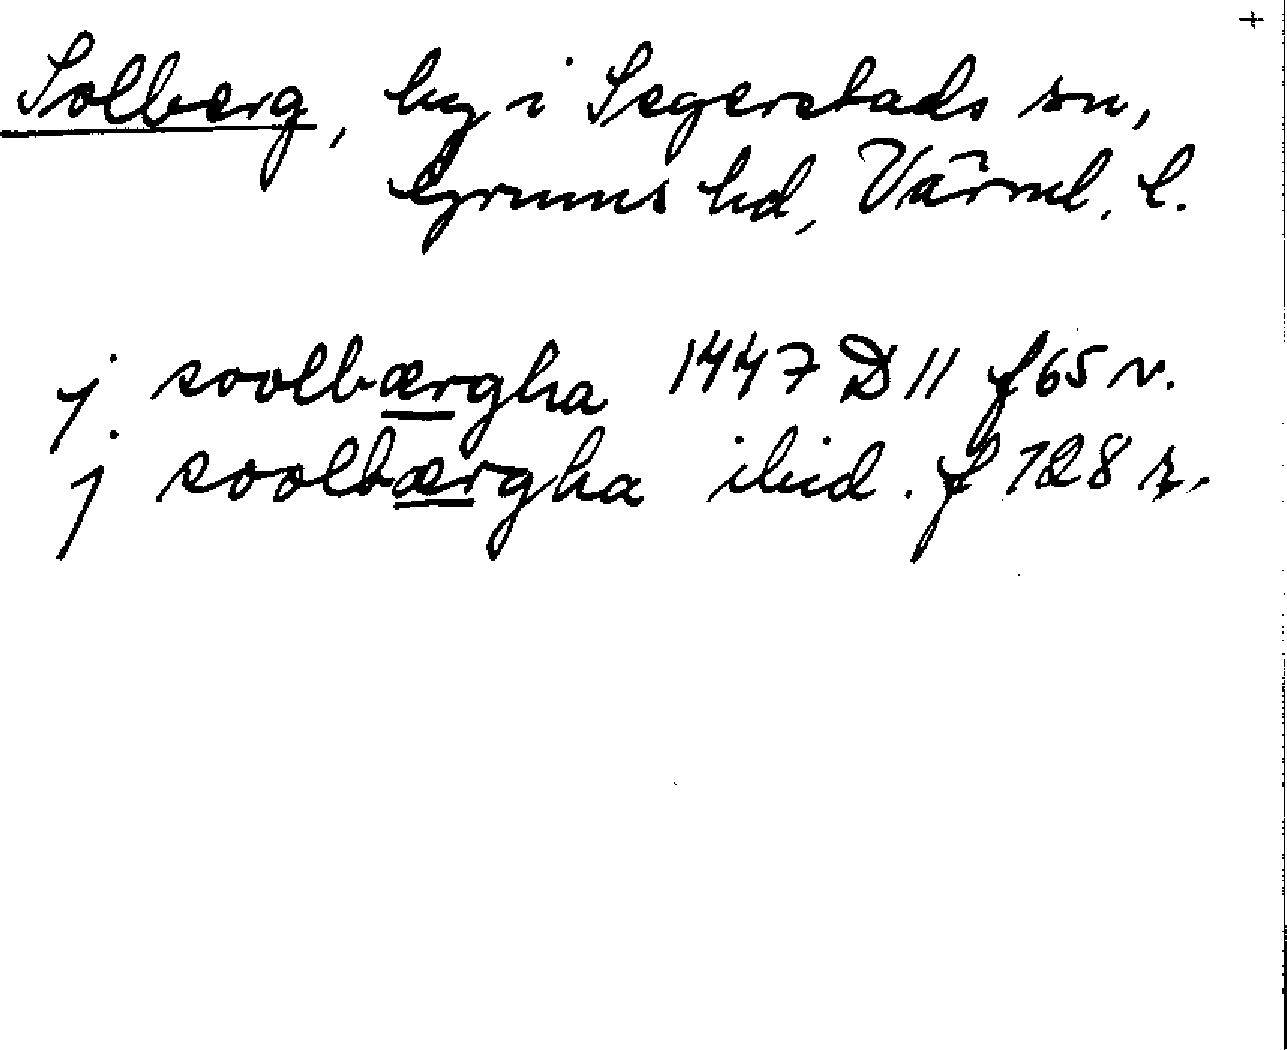 +
Solberg, by i Segerstads sn,
Grums hd, Värml. l.
j soolbærgha 1447 D 11 f 65 v.
j soolbærgha ibid. f 128 r.